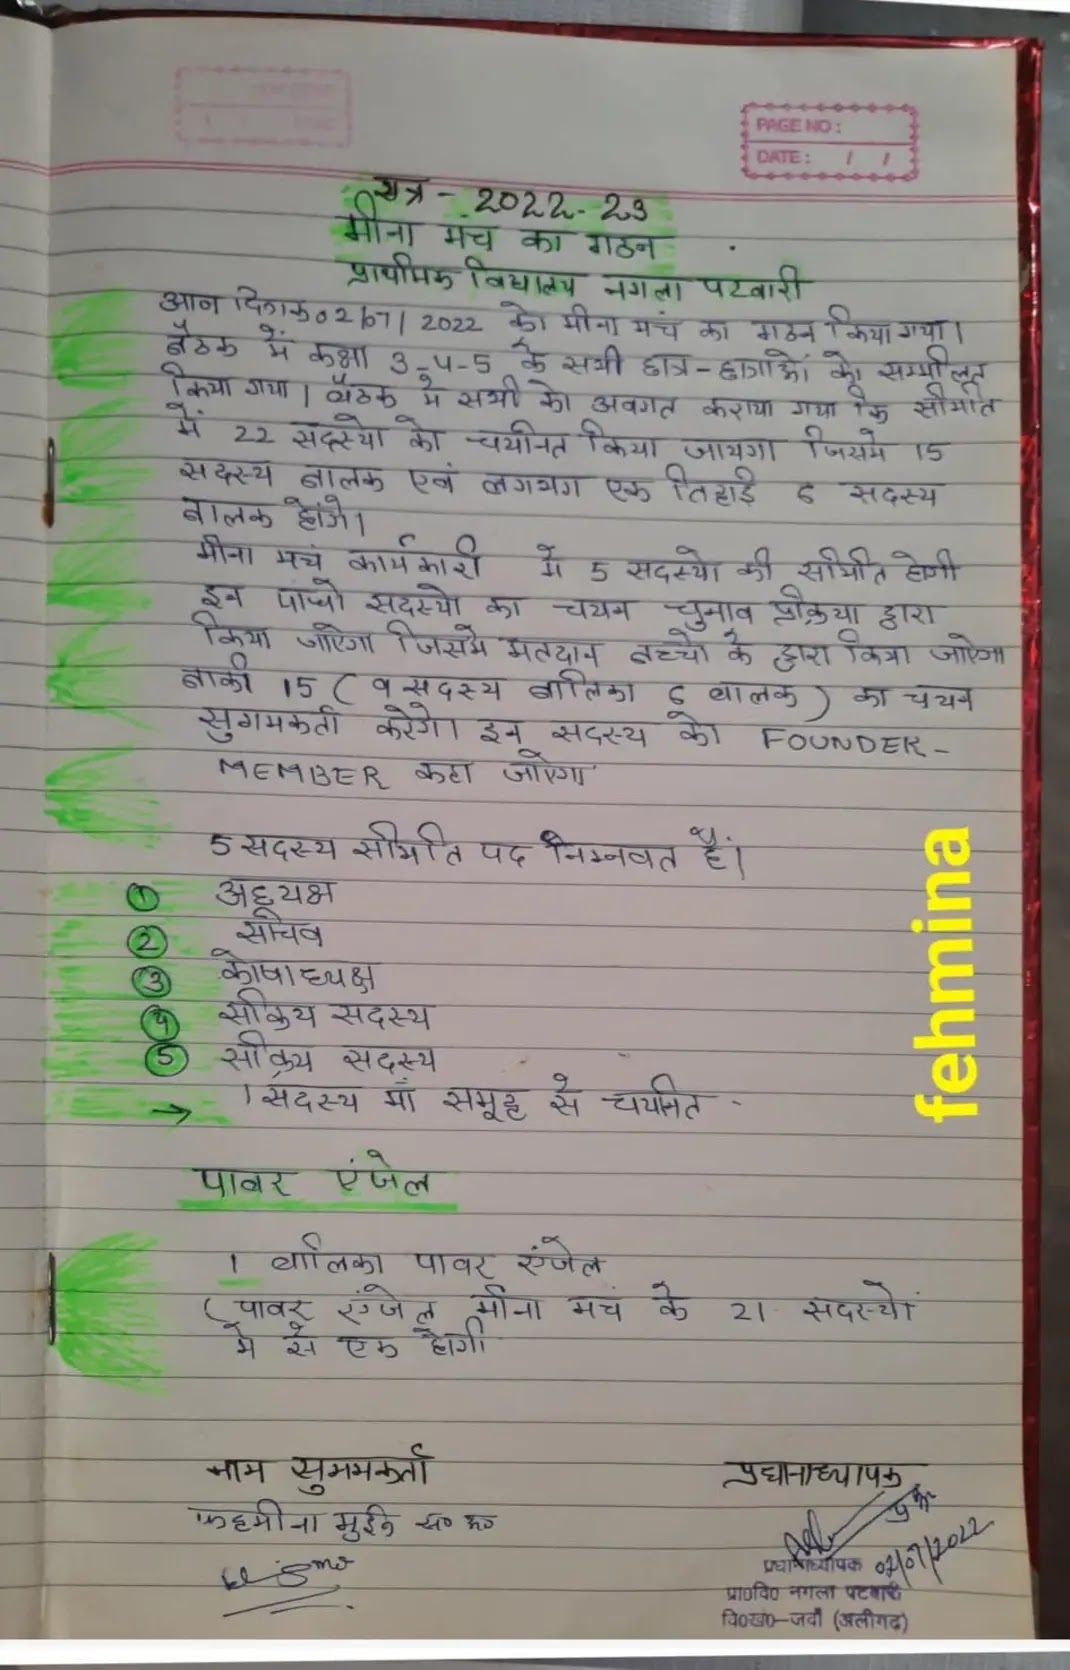 PAGE NO:
DATE: / /
सत्र - 2022-23
मीना मंच का गठन
प्राथमिक विद्यालय नगला पटवारी
आज दिनांक 02/07/2022 को मीना मचं का गठन किया गया।
बैठक में कक्षा 3-4-5 के सभी छात्र-छात्राओं को सम्मीलत
किया गया। बैठक मे सभी को अवगत कराया गया कि समिति
में 22 सदस्यो को चयनित किया जायगा जिसमे 15
सदस्य बालक एवं लगभग एक तिहाई 6 सदस्य
बालक होंगे।
मीना मचं कार्यकारी मे 5 सदस्यो की समिति होगी
इन पांचो सदस्यो का चयन चुनाव प्रक्रिया द्वारा
किया जाऐगा जिसमे मतदान बच्चो के द्वारा किया जाऐगा
बाकी 15 (9 सदस्य बालिका 6 बालक) का चयन
सुगमकर्ता करेगे। इन सदस्य को FOUNDER-
MEMBER कहा जाऐगा
5 सदस्य समिति पद निम्नवत है।
① अद्दयक्ष
② सचिव
③ कोषाध्यक्ष
④ सक्रिय सदस्य
⑤ सक्रिय सदस्य
→ 1 सदस्य माँ समूह से चयनित -
पावर एंजेल
1 बालिका पावर एंजेल
(पावर एंजेल मीना मचं के 21 सदस्यों
मे से एक होगी
नाम सुगमकर्ता प्रधानाध्यापक
फहमीना मुईन स० अ०
02/07/2022
प्रधानाध्यापक
प्रा०वि० नगला पटवारी
वि०खं०-जवाँ (अलीगढ़)
fehmina